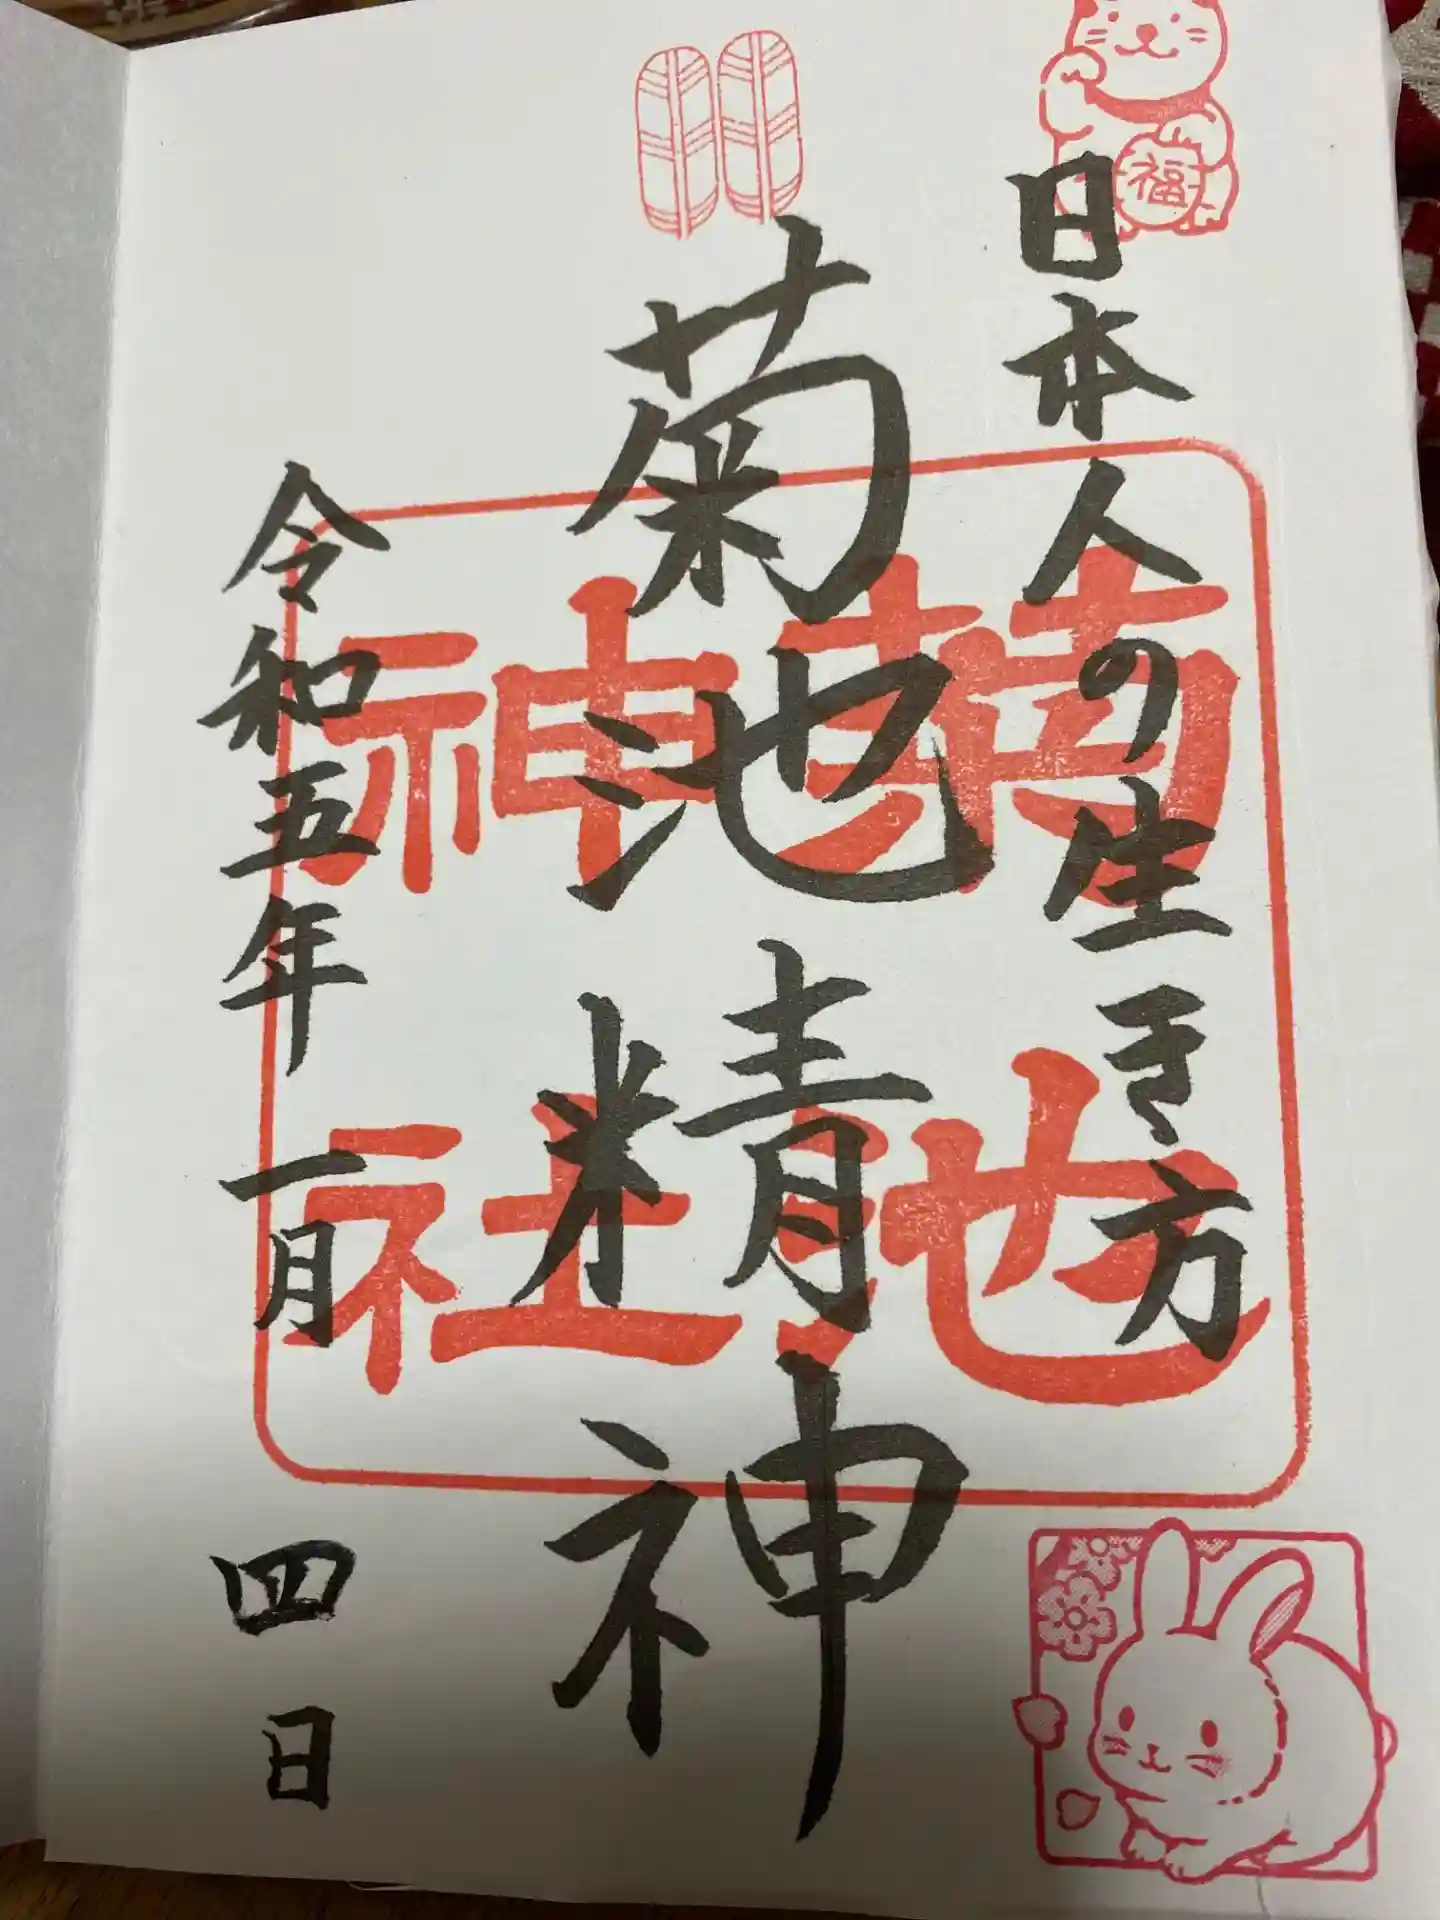 福
日本人の生き方
菊池精神
令和五年一月四日
菊池
神社